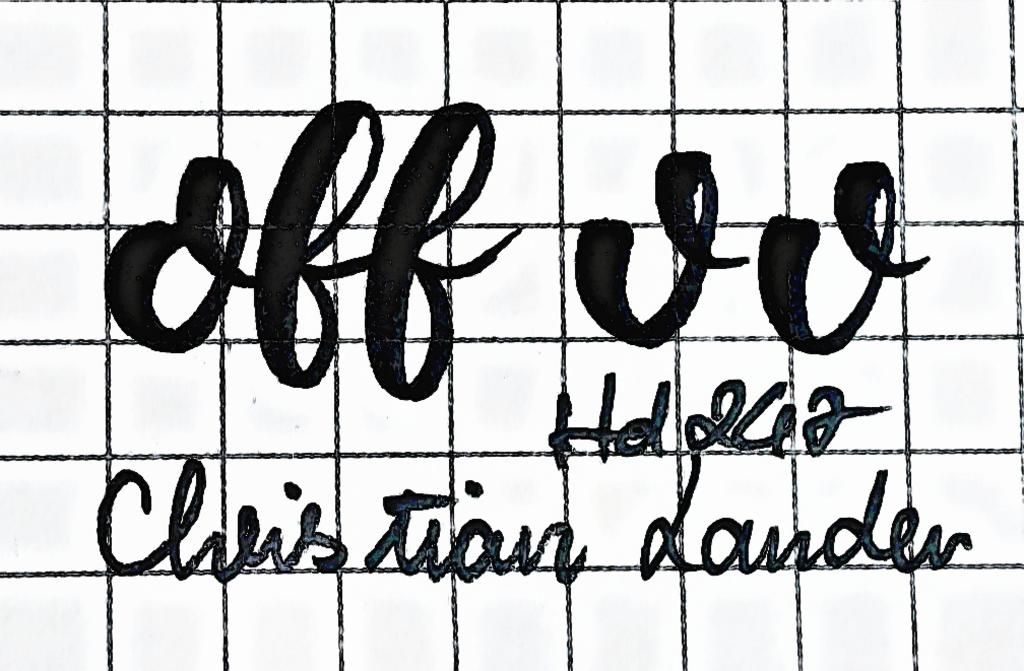 off vv
Hd 242
Christian Lander